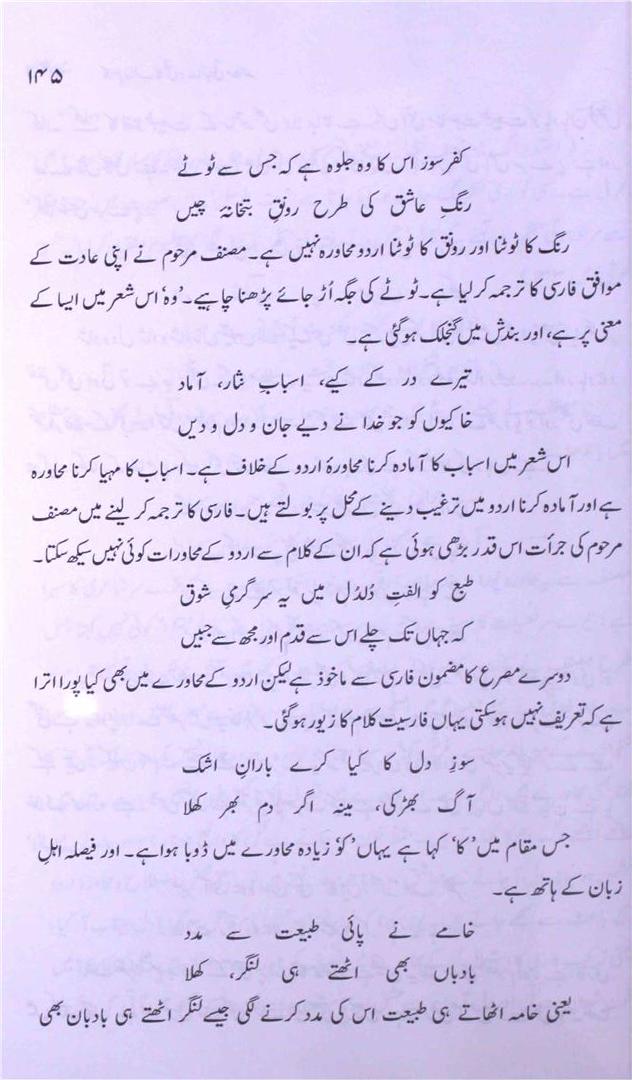 ۱۴۵
کفر سوز اس کا وہ جلوہ ہے کہ جس سے ٹوٹے
رنگِ عاشق کی طرح رونقِ بتخانۂ چیں
رنگ کا ٹوٹنا اور رونق کا ٹوٹنا اردو محاورہ نہیں ہے۔ مصنف مرحوم نے اپنی عادت کے
موافق فارسی کا ترجمہ کر لیا ہے۔ ٹوٹے کی جگہ اُڑ جائے پڑھنا چاہیے۔ 'وہ' اس شعر میں ایسا کے
معنی پر ہے، اور بندش میں گنجلک ہو گئی ہے۔
تیرے در کے لیے، اسبابِ نثار، آماد
خاکیوں کو جو خدا نے دیے جان و دل و دیں
اس شعر میں اسباب کا آمادہ کرنا محاورۂ اردو کے خلاف ہے۔ اسباب کا مہیا کرنا محاورہ
ہے اور آمادہ کرنا اردو میں ترغیب دینے کے محل پر بولتے ہیں۔ فارسی کا ترجمہ کر لینے میں مصنف
مرحوم کی جرأت اس قدر بڑھی ہوئی ہے کہ ان کے کلام سے اردو کے محاورات کوئی نہیں سیکھ سکتا۔
طبع کو الفتِ دُلدُل میں یہ سرگرمیِ شوق
کہ جہاں تک چلے اس سے قدم اور مجھ سے جبیں
دوسرے مصرع کا مضمون فارسی سے ماخوذ ہے لیکن اردو کے محاورے میں بھی کیا پورا اترا
ہے کہ تعریف نہیں ہو سکتی یہاں فارسیت کلام کا زیور ہو گئی۔
سوزِ دل کا کیا کرے بارانِ اشک
آگ بھڑکی، مینہ اگر دم بھر کھلا
جس مقام میں 'کا' کہا ہے یہاں 'کو' زیادہ محاورے میں ڈوبا ہوا ہے۔ اور فیصلہ اہلِ
زبان کے ہاتھ ہے۔
خامے نے پائی طبیعت سے مدد
بادباں بھی اٹھتے ہی لنگر، کھلا
یعنی خامہ اٹھاتے ہی طبیعت اس کی مدد کرنے لگی جیسے لنگر اٹھتے ہی بادبان بھی